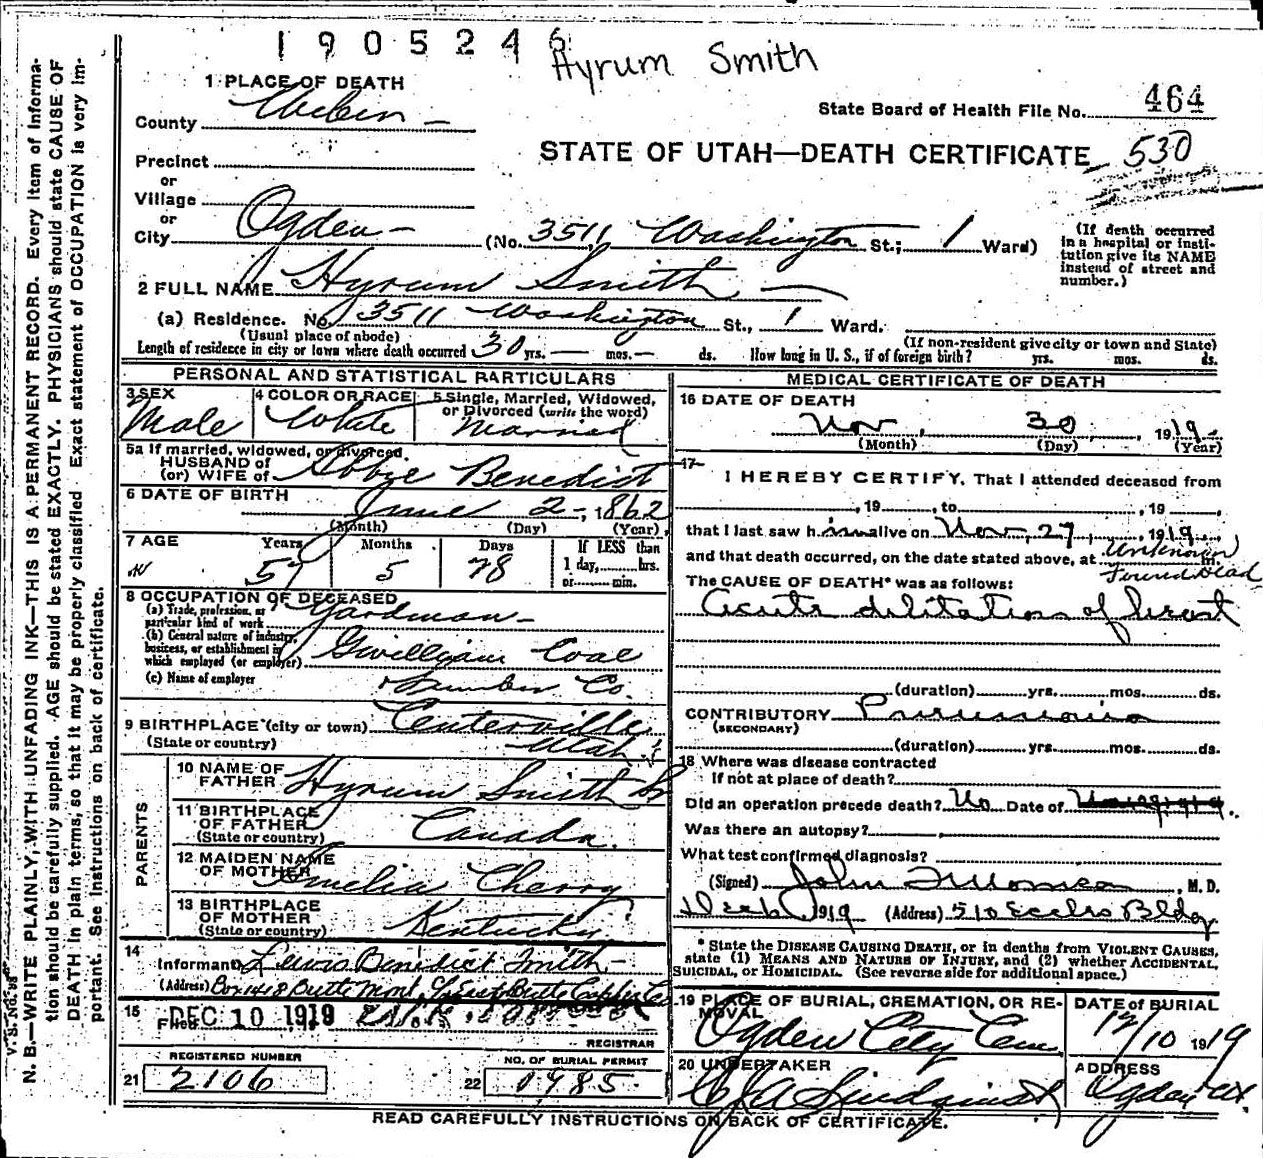 1905246
Hyrum Smith
1 PLACE OF DEATH
State Board of Health File No. 464
County Weber
STATE OF UTAH—DEATH CERTIFICATE 530
Precinct
or
Village
or
City Ogden (No. 3511 Washington St.; 1 Ward)
(If death occurred in a hospital or institution give its NAME instead of street and number.)
2 FULL NAME Hyrum Smith
(a) Residence. No. 3511 Washington St., 1 Ward.
(Usual place of abode)
(If non-resident give city or town and State)
Length of residence in city or town where death occurred 30 yrs. — mos. — ds. How long in U. S., if of foreign birth? yrs. mos. ds.
PERSONAL AND STATISTICAL PARTICULARS
3 SEX
Male
4 COLOR OR RACE
White
5 Single, Married, Widowed, or Divorced (write the word)
Married
5a If married, widowed, or divorced
HUSBAND of
(or) WIFE of Abbie Benedict
6 DATE OF BIRTH June 2-, 1862
(Month) (Day) (Year)
7 AGE Years Months Days If LESS than
57 5 28 1 day, hrs.
or min.
8 OCCUPATION OF DECEASED
(a) Trade, profession, or particular kind of work Yardman
(b) General nature of industry, business, or establishment in which employed (or employer) Gwilliam Coal
(c) Name of employer Lumber Co.
9 BIRTHPLACE (city or town) Centerville
(State or country) Utah
PARENTS
10 NAME OF FATHER Hyrum Smith Sr
11 BIRTHPLACE OF FATHER
(State or country) Canada.
12 MAIDEN NAME OF MOTHER Amelia Cherry
13 BIRTHPLACE OF MOTHER
(State or country) Kentucky
14
Informant Lewis Benedict Smith
(Address) Box 1418 Butte Mont, c/o East Butte Copper Co
15
Filed DEC 10 1919
REGISTRAR
REGISTERED NUMBER
21 2106
NO. OF BURIAL PERMIT
22 1985
MEDICAL CERTIFICATE OF DEATH
16 DATE OF DEATH
Nov, 30, 1919
(Month) (Day) (Year)
17
I HEREBY CERTIFY, That I attended deceased from
, 19 , to , 19 ,
that I last saw him alive on Nov, 27, 1919
and that death occurred, on the date stated above, at Unknown m.
Found dead
The CAUSE OF DEATH* was as follows:
Acute dilitation of heart
(duration) yrs. mos. ds.
CONTRIBUTORY
(SECONDARY)
Pneumonia
(duration) yrs. mos. ds.
18 Where was disease contracted
If not at place of death?
Did an operation precede death? No Date of
Was there an autopsy?
What test confirmed diagnosis?
(Signed) John , M. D.
Dec 6, 1919 (Address) 510 Eccles Bldg
* State the DISEASE CAUSING DEATH, or in deaths from VIOLENT CAUSES, state (1) MEANS AND NATURE OF INJURY, and (2) whether ACCIDENTAL, SUICIDAL, or HOMICIDAL. (See reverse side for additional space.)
19 PLACE OF BURIAL, CREMATION, OR REMOVAL
Ogden City Cem
DATE OF BURIAL
12/10 1919
20 UNDERTAKER
Lindquist
ADDRESS
Ogden Ut
READ CAREFULLY INSTRUCTIONS ON BACK OF CERTIFICATE.
V. S. No.
N. B.—WRITE PLAINLY, WITH UNFADING INK—THIS IS A PERMANENT RECORD. Every item of information should be carefully supplied. AGE should be stated EXACTLY. PHYSICIANS should state CAUSE OF DEATH in plain terms, so that it may be properly classified. Exact statement of OCCUPATION is very important. See instructions on back of certificate.